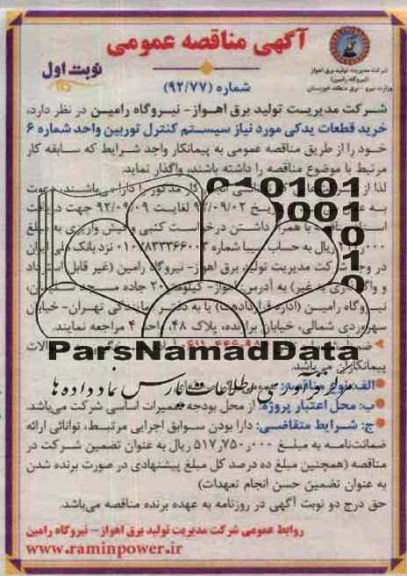 آگهی مناقصه عمومی
شرکت مدیریت تولید برق اهواز
(نیروگاه رامین)
وزارت نیرو - برق منطقه خوزستان
نوبت اول
شماره (۹۲/۷۷)
شرکت مدیریت تولید برق اهواز- نیروگاه رامین در نظر دارد،
خرید قطعات یدکی مورد نیاز سیستم کنترل توربین واحد شماره ۶
خود را از طریق مناقصه عمومی به پیمانکار واجد شرایط که سابقه کار
مرتبط با موضوع مناقصه را داشته باشند، واگذار نماید.
لذا از مذکور را دارا می‌باشند، دعوت
۹۲/۰۹/۰۲ لغایت ۹۲/۰۹/۰۹ جهت دریافت
همراه داشتن درخواست کتبی و فیش واریزی به مبلغ
ریال به حساب سیبا شماره ۰۱۰۷۸۳۳۳۶۶۰۰۳ نزد بانک ملی ایران
در وجه شرکت مدیریت تولید برق اهواز- نیروگاه رامین (غیر قابل استرداد
و واگذاری به غیر) به آدرس: اهواز- کیلومتر ۲۰ جاده مسجد
نیروگاه رامین (اداره قراردادها) یا به دفتر نمایندگی تهران- خیابان
سهروردی شمالی، خیابان پلاک ۴۸، واحد ۴ مراجعه نمایند.
010101
0001
10
1
0
ParsNamadData
پیمانکاران می‌باشد.
مرکز فرآوری اطلاعات پارس نماد داده ها
الف: نوع مناقصه:
ب: محل اعتبار پروژه: از محل بودجه تعمیرات اساسی شرکت می‌باشد.
ج: شرایط متقاضی: دارا بودن سوابق اجرایی مرتبط، توانائی ارائه
ضمانت‌نامه به مبلغ ۵۱۷٫۷۵۰٫۰۰۰ ریال به عنوان تضمین شرکت در
مناقصه (همچنین مبلغ ده درصد کل مبلغ پیشنهادی در صورت برنده شدن
به عنوان تضمین حسن انجام تعهدات)
حق درج دو نوبت آگهی در روزنامه به عهده برنده مناقصه می‌باشد.
روابط عمومی شرکت مدیریت تولید برق اهواز- نیروگاه رامین
www.raminpower.ir